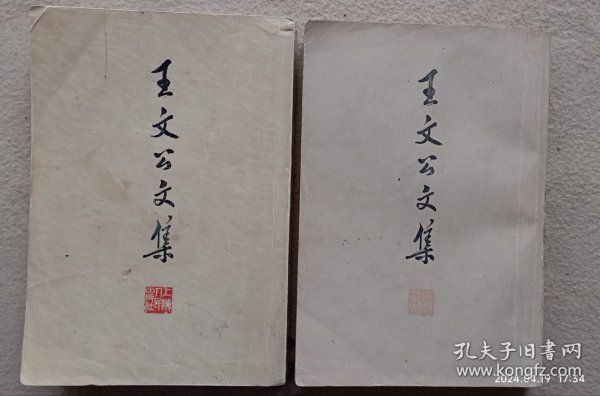 王文公文集
上海人民出版社
王文公文集
孔夫子旧书网
www.kongfz.com
2024.04.19 17:34